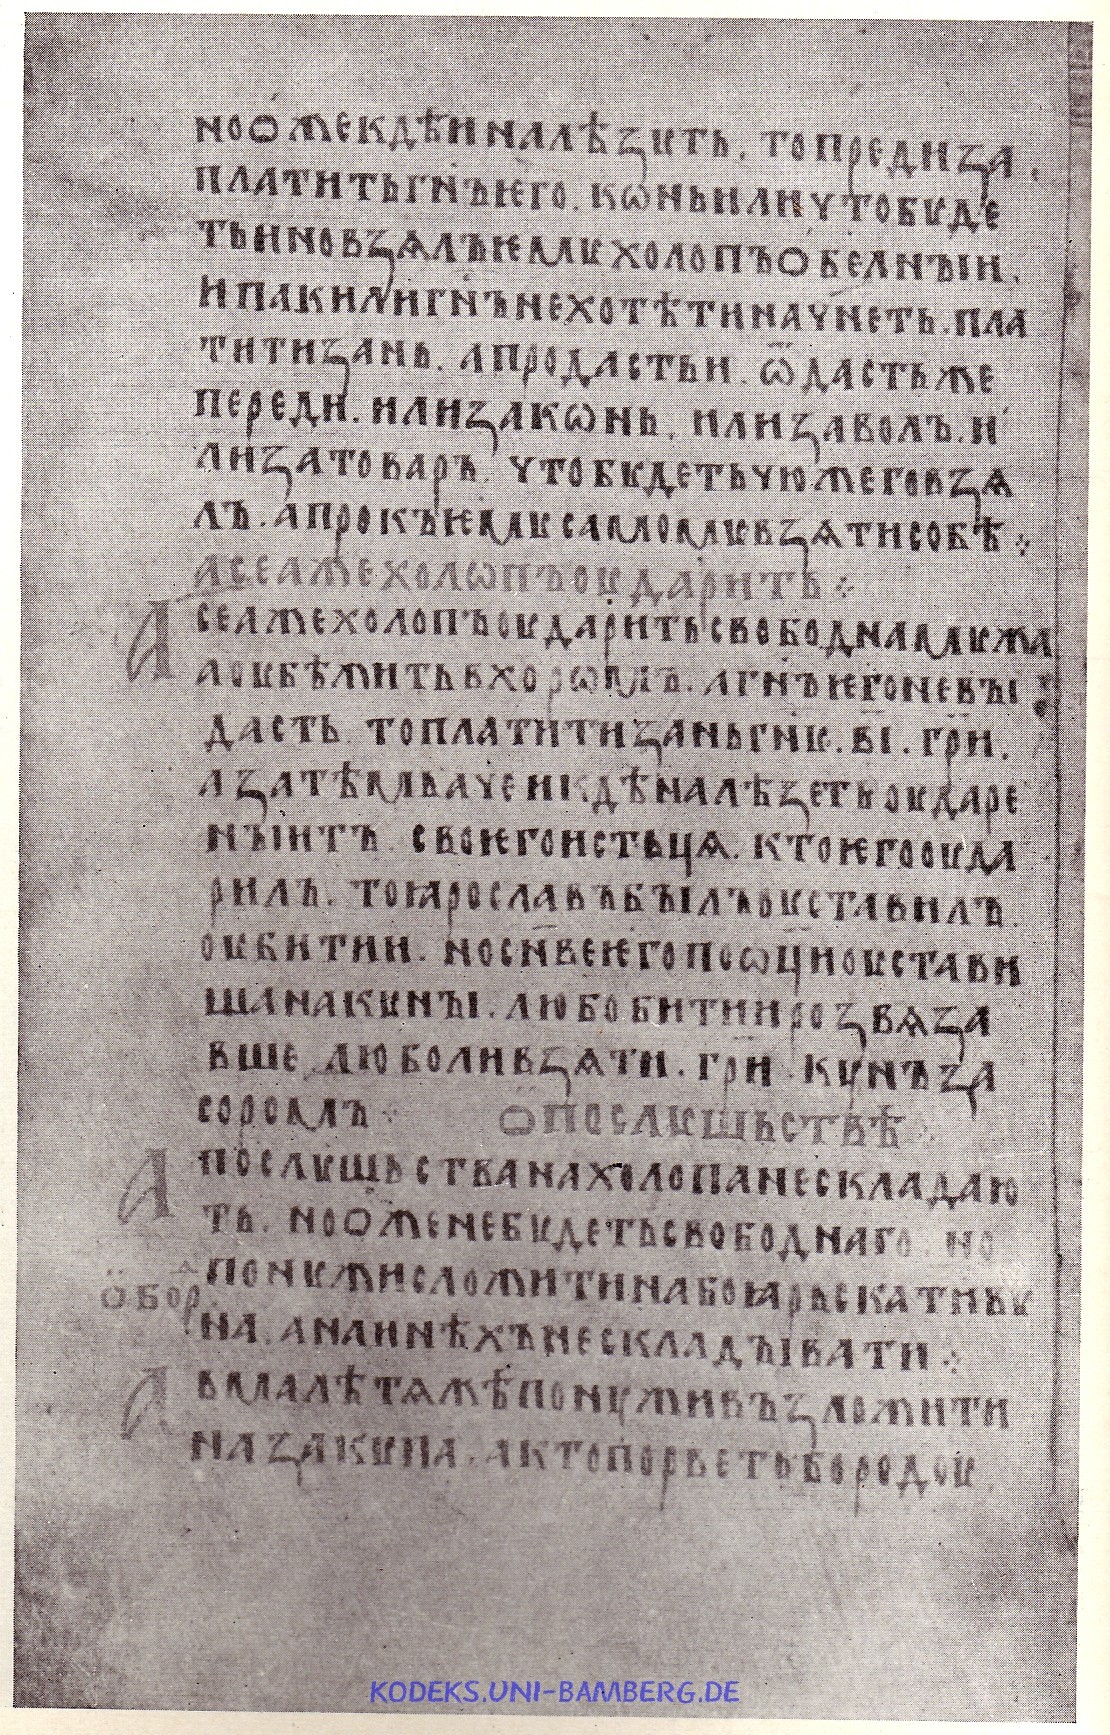 но ѡже кдѣ и налѣзуть. то преди за
платить гн҃ъ ѥго. кѡнь или что буде
ть ино взѧлъ ѥму холопъ ѻбелныи.
и паки ли гн҃ъ не хотѣти начнеть. пла
тити за нь. а продасть и. ѿдасть же
переди. или за кѡнь. или за волъ. и
ли за товаръ. что будеть чюжего взѧ
лъ. а прокъ ѥму самому взѧти собѣ ⁘
а се аже холѡпъ оударить ⁘
А се аже холопъ оударить свободна мужа
а оубѣжить в хоромъ. а гн҃ъ ѥго не вы
дасть то платити за нь гн҃у. в҃і. грн҃.
а за тѣмь аче и кдѣ налѣзеть оударе
ныи тъ своѥго истьцѧ. кто ѥго оуда
рилъ. то ꙗрославъ былъ оуставилъ
оубити и. но сн҃ве ѥго по ѡц҃и оустави
ша на куны. любо бити и розвѧза
вше любо ли взѧти. грн҃. кунъ за
соромъ ⁘ ѻ послушьствѣ
А послушьства на холопа не складаю
ть. но ѻже не будеть свободнаго. но
по нужи сложити на боꙗрьска тиву
на. а на инѣхъ не складывати ⁘
А в малѣ тѧжѣ по нужи възложити
на закупа. а кто порветь бородоу
ѻ бор
KODEKS.UNI-BAMBERG.DE